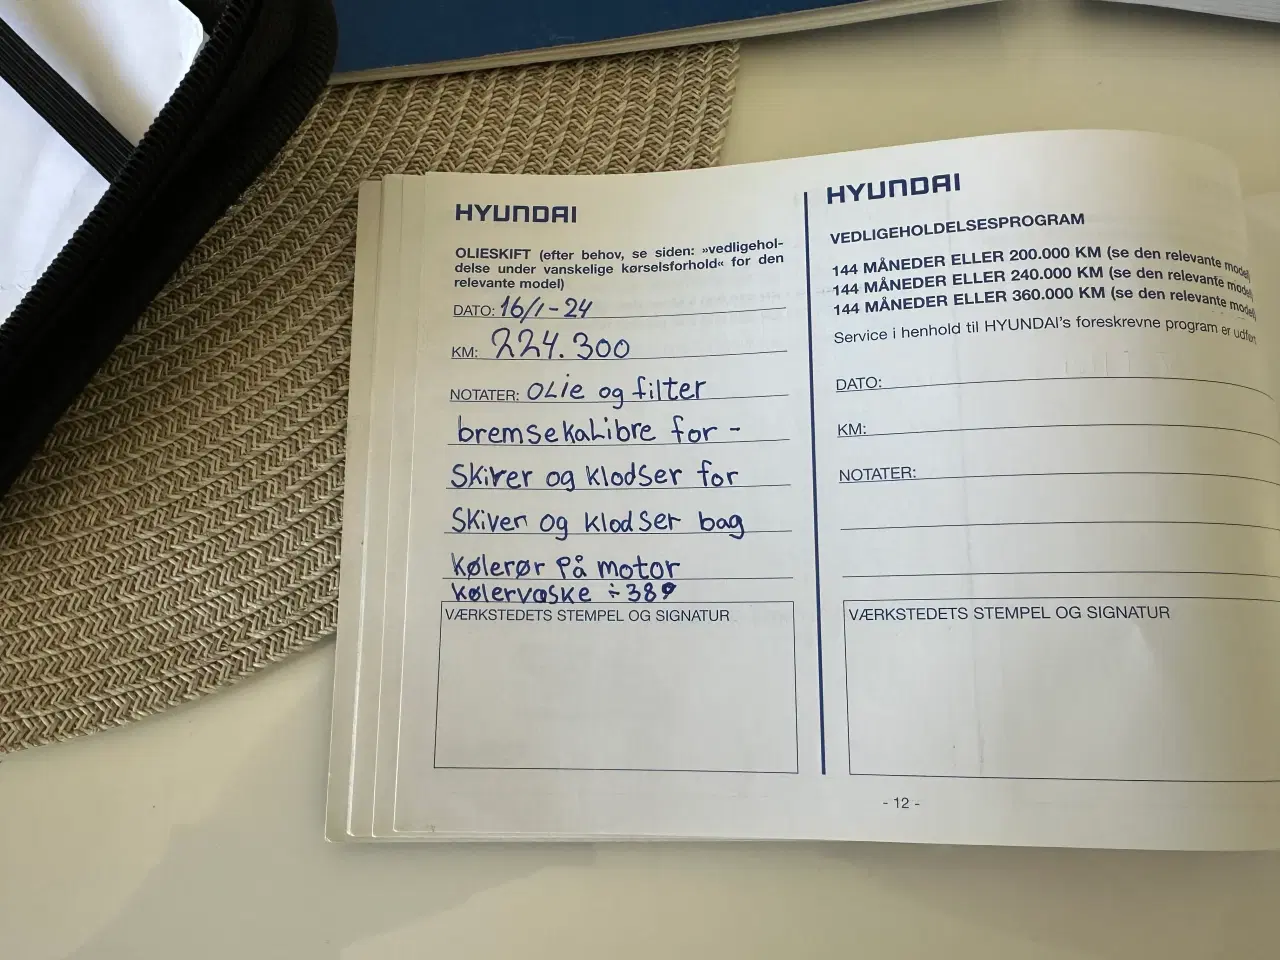 HYUNDAI
OLIESKIFT (efter behov, se siden: »vedligehol-
delse under vanskelige kørselsforhold« for den
relevante model)
DATO: 16/1-24
KM: 224.300
NOTATER: OLie og filter
bremsekaLibre for -
Skiver og klodser for
Skiver og klodser bag
Kølerør På motor
kølervæske ÷38°
VÆRKSTEDETS STEMPEL OG SIGNATUR
HYUNDAI
VEDLIGEHOLDELSESPROGRAM
144 MÅNEDER ELLER 200.000 KM (se den relevante model)
144 MÅNEDER ELLER 240.000 KM (se den relevante model)
144 MÅNEDER ELLER 360.000 KM (se den relevante model)
Service i henhold til HYUNDAI's foreskrevne program er udført
DATO:
KM:
NOTATER:
VÆRKSTEDETS STEMPEL OG SIGNATUR
- 12 -